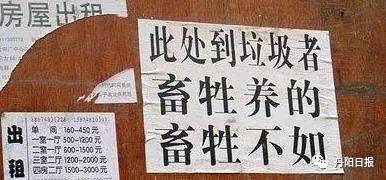 房屋出租
此处到垃圾者
畜牲养的
畜牲不如
出租
单间 160-450元
一室一厅 500-1200元
二室一厅 800-1500元
三室二厅 1200-2000元
四房二厅 1500-3000元
丹阳日报